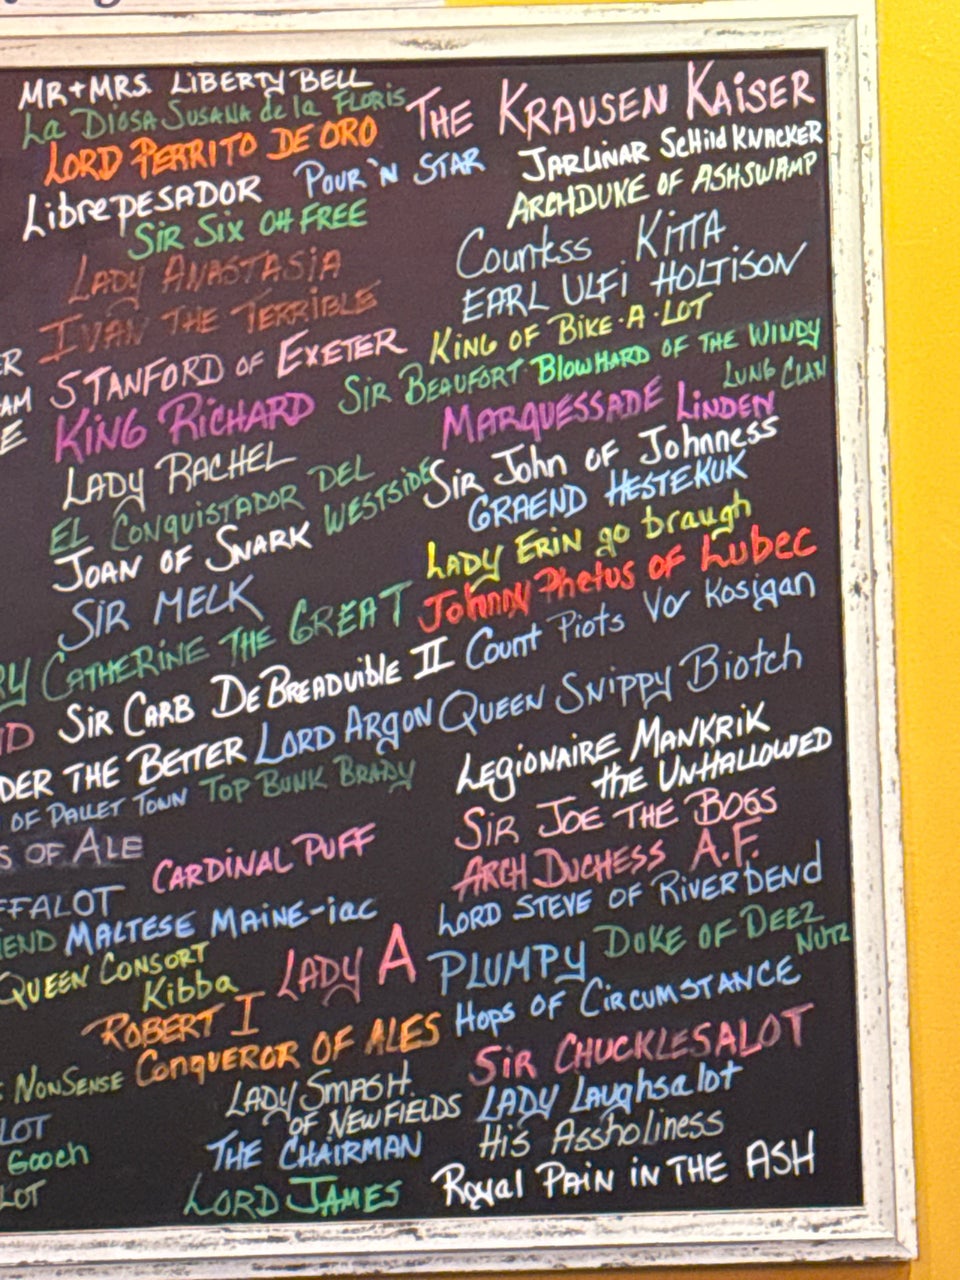 MR + MRS. LIBERTY BELL
La Diosa Susana de la Floris
THE KRAUSEN KAISER
LORD PERRITO DE ORO
JARLINAR Schild KNACKER
LibrepESADOR
POUR 'N STAR
ARCHDUKE OF ASHSWAMP
SIR SIX OH FREE
Countess KITTA
LADY ANASTASIA
EARL ULFi HOLTISON
IVAN THE TERRIBLE
KING OF BIKE·A·LOT
STANFORD OF EXETER
SIR BEAUFORT BLOWHARD OF THE WINDY
LUNG CLAN
KING RICHARD
MARQUESSADE LINDEN
LADY RACHEL
Sir John OF Johnness
EL CONQUISTADOR DEL
WESTSIDE
GRAEND HESTEKUK
JOAN OF SNARK
LADY ERIN go braugh
SIR MELK
Johnny Phetus OF Lubec
CATHERINE THE GREAT
Count Piots Vor Kosigan
SIR CARB DeBREADVIBLE II
QUEEN SNIPPY Biotch
DER THE BETTER
LORD ARgON
LEGIONAIRE MANKRIK
the UNHALLOWED
OF PALLET TOWN
TOP BUNK BRADY
SIR JOE THE BOGS
S OF ALE
CARDINAL PUFF
ARCH DUCHESS A.F.
FFALOT
LORD STEVE OF RIVERbEND
IEND
MALTESE MAINE-iac
DUKE OF DEEZ
NUTZ
QUEEN CONSORT
Kibba
LADY A
PLUMPY
ROBERT I
CONQUEROR OF ALES
HOPS OF CIRCUMSTANCE
SIR CHUCKLESALOT
NONSENSE
LADY SMASH
OF NEWFIELDS
LADY Laughsalot
LOT
Gooch
THE CHAIRMAN
His Assholiness
LOT
LORD JAMES
Royal PAIN IN THE ASH